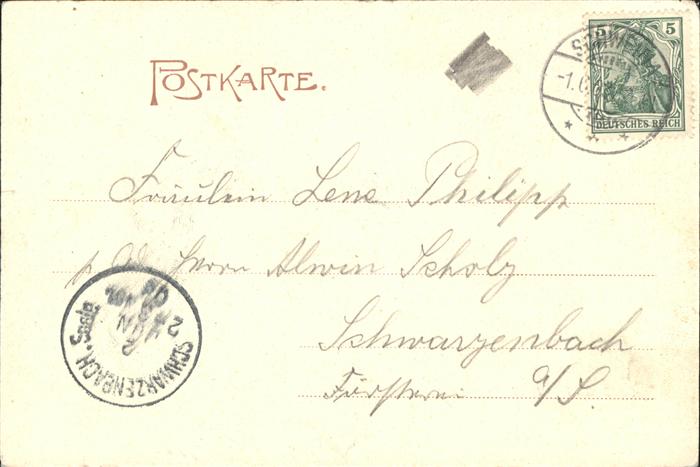 POSTKARTE.
5
DEUTSCHES REICH
Fräulein Lene Philipp
p. Ad. Herrn Alwin Scholz
Schwarzenbach
Försterei a/S.
SCHWARZENBACH. Saale
2 JAN